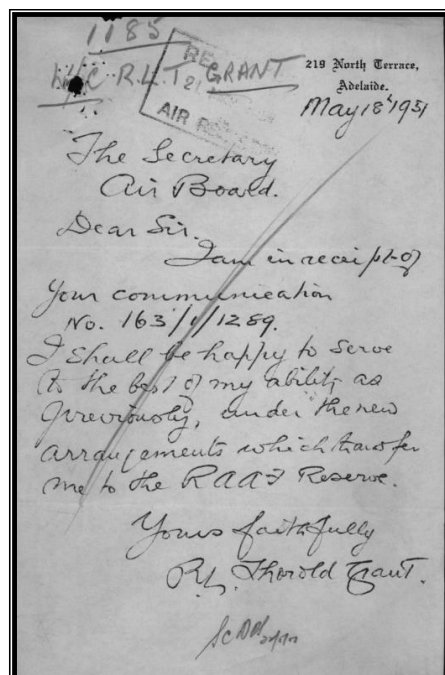 1185
W/C R.L.T. GRANT
21
AIR
219 North Terrace,
Adelaide.
May 18th 1951
The Secretary
Air Board.
Dear Sir.
I am in receipt of
your communication
No. 163/1/1289.
I shall be happy to serve
to the best of my ability as
previously, under the new
arrangements which transfer
me to the RAAF Reserve.
Yours faithfully
R.L. Thorold Grant.